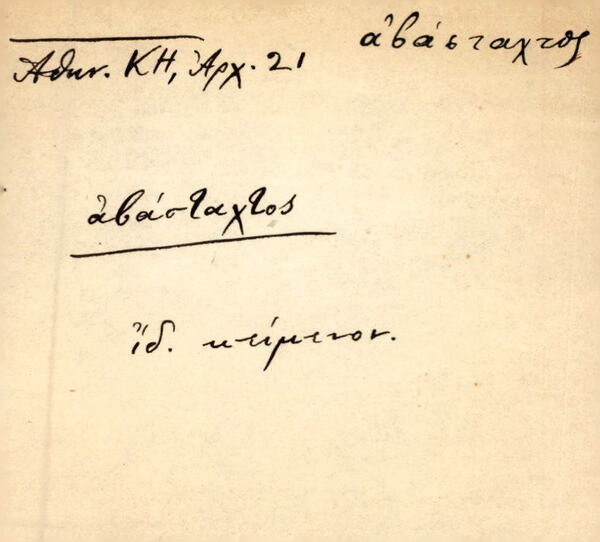 Ἀθην. ΚΗ, Ἀρχ. 21
ἀβάσταχτος
ἀβάσταχτος
ἴδ. κείμενον.